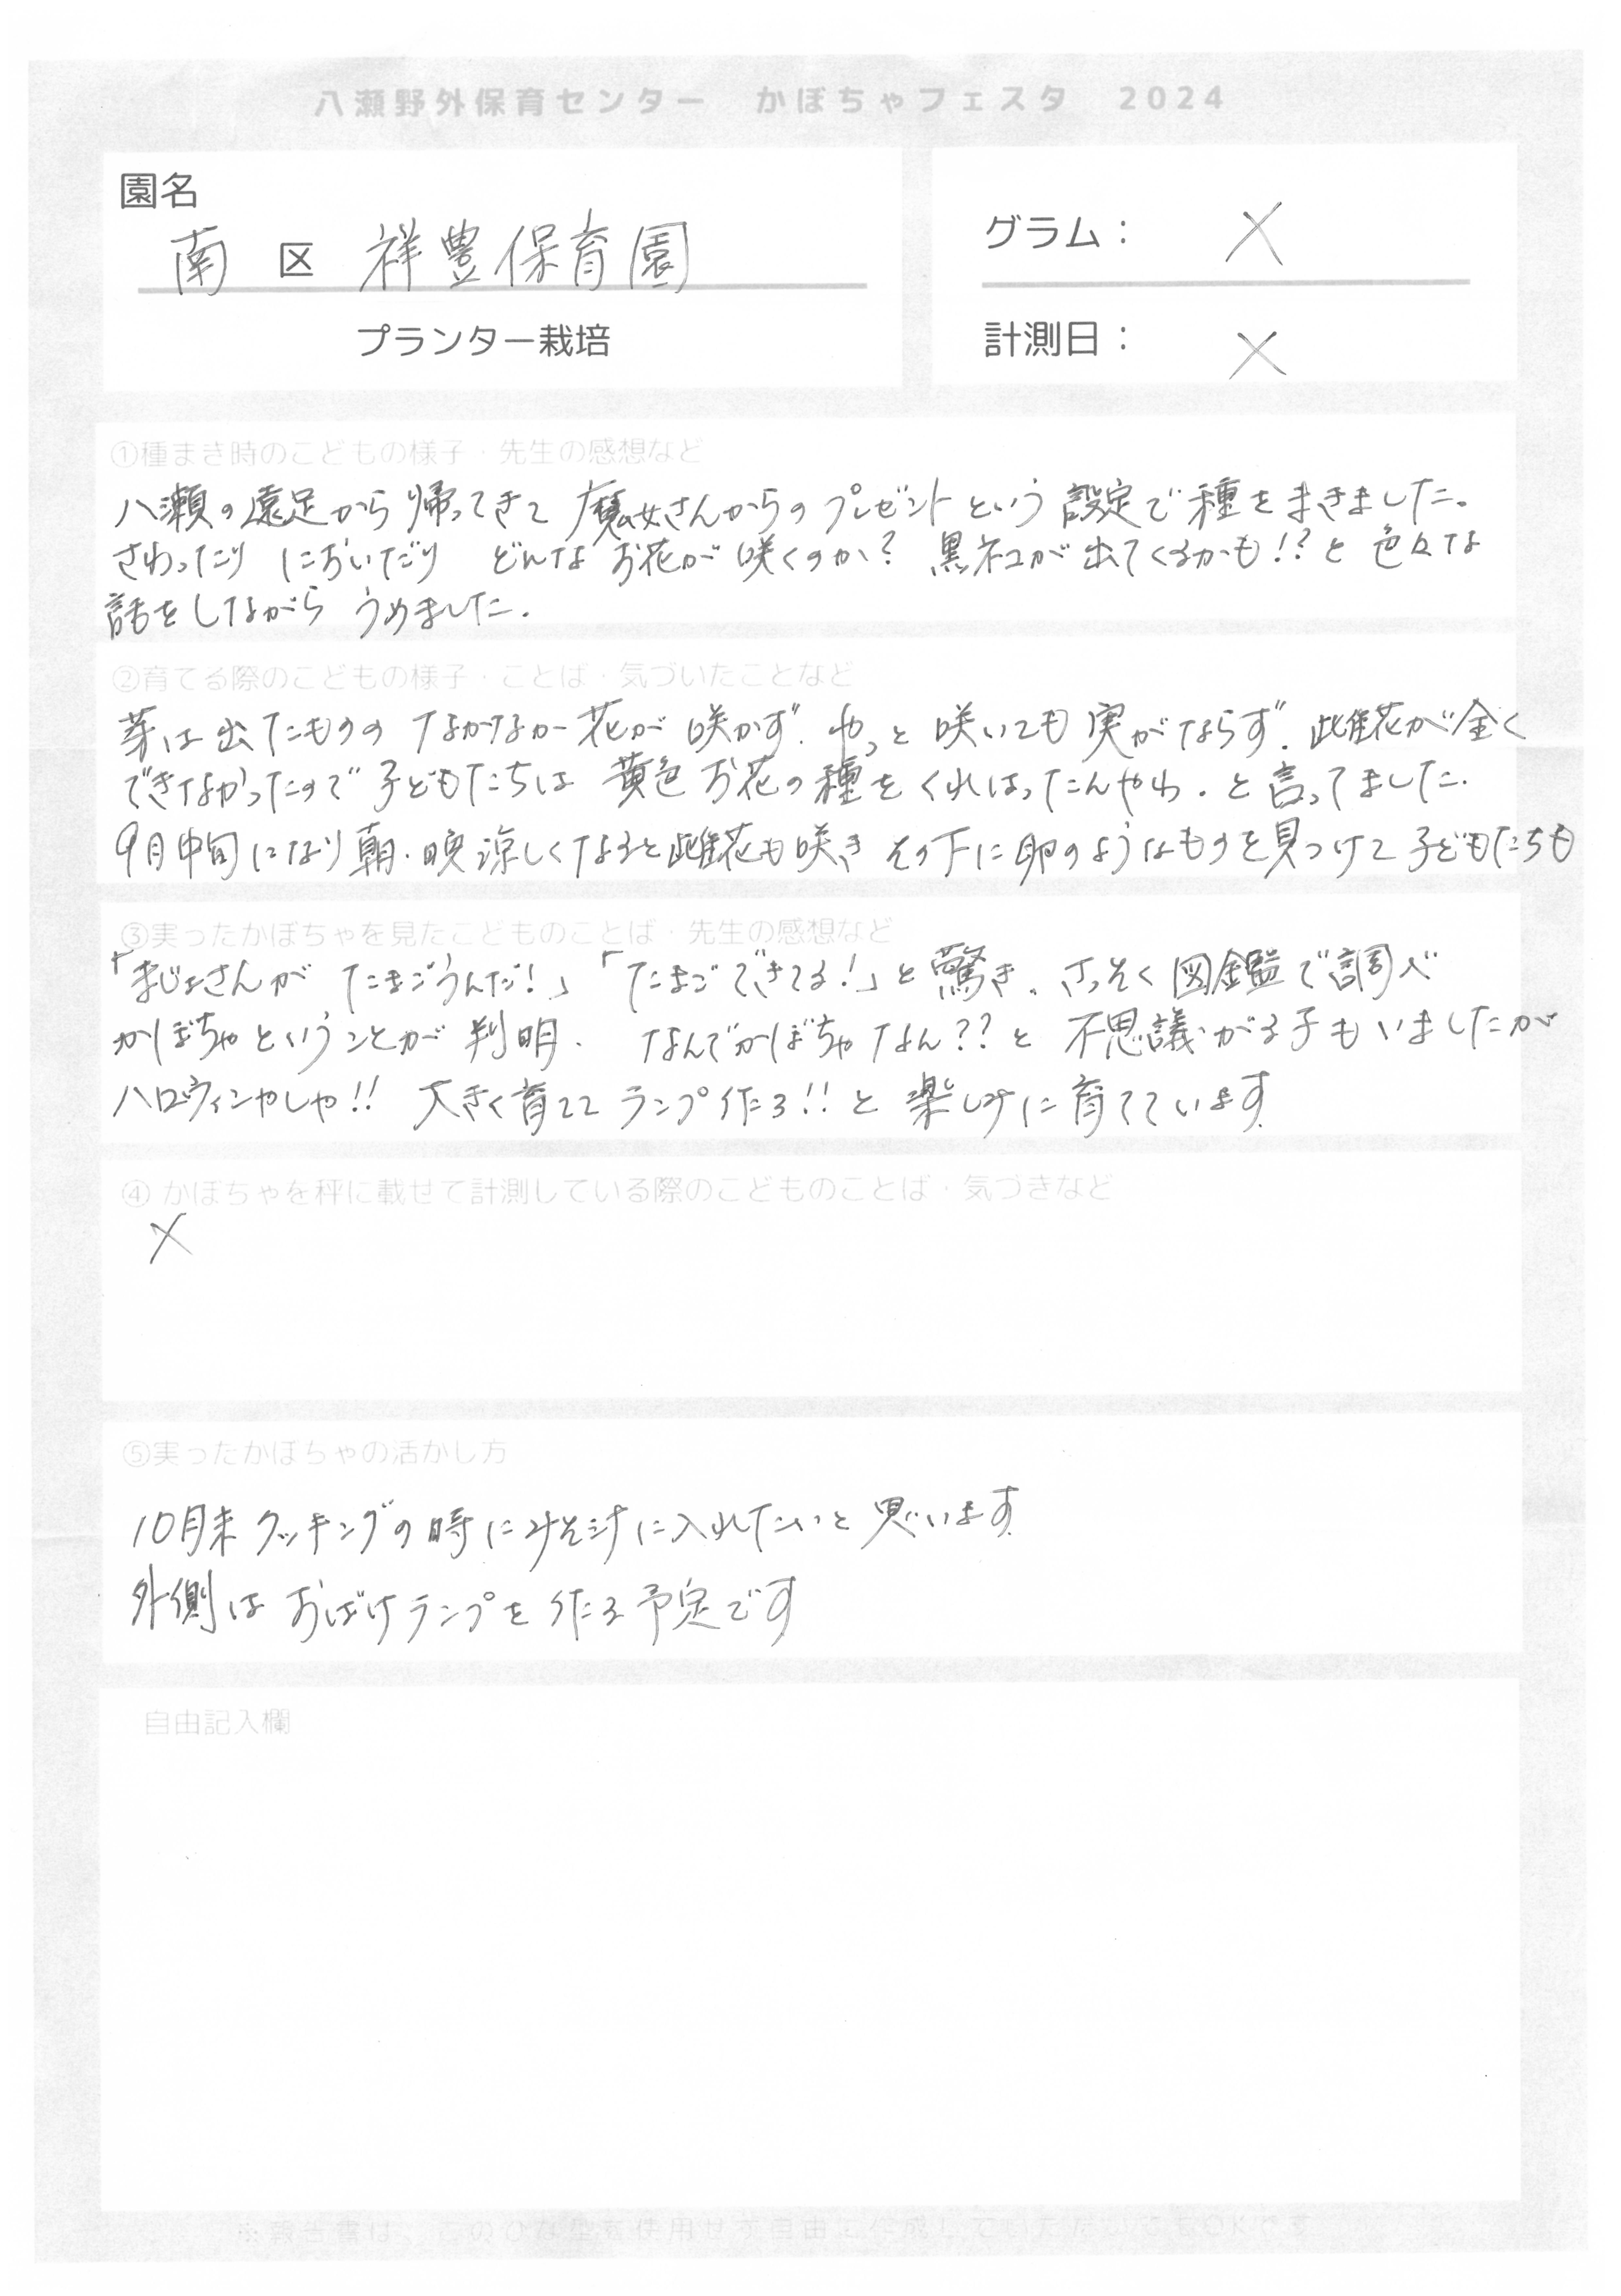 八瀬野外保育センター　かぼちゃフェスタ　2024
園名
南 区 祥豊保育園
プランター栽培
グラム： ×
計測日： ×
①種まき時のこどもの様子・先生の感想など
八瀬の遠足から帰ってきて 魔女さんからの プレゼントという 設定で 種をまきました。
さわったり においだり どんな お花が 咲くのか？ 黒ネコが 出てくるかも!?と 色々な
話をしながら うめました.
②育てる際のこどもの様子・ことば・気づいたことなど
芽は出たものの なかなか 花が 咲かず. やっと 咲いても 実がならず. 雌花が全く
できなかったので 子どもたちは 黄色お花の種をくれはったんやわ. と言ってました.
9月中旬になり 朝・晩 涼しくなると雌花も咲き その下に 卵のようなものを見つけて 子どもたちも
③実ったかぼちゃを見たこどものことば・先生の感想など
「まじょさんが たまごうんだ!」「たまごできてる!」と驚き. さっそく 図鑑で調べ
かぼちゃということが 判明. なんでかぼちゃなん??と 不思議がる子もいましたが
ハロウィンやしや!! 大きく育てて ランプ作ろ!!と 楽しみに育てています
④ かぼちゃを秤に載せて計測している際のこどものことば・気づきなど
×
⑤実ったかぼちゃの活かし方
10月末 クッキングの時に みそ汁に入れたいと 思います
外側は おばけランプを 作る予定です
自由記入欄
※報告書は、このひな型を使用せず自由に作成していただいてもOKです